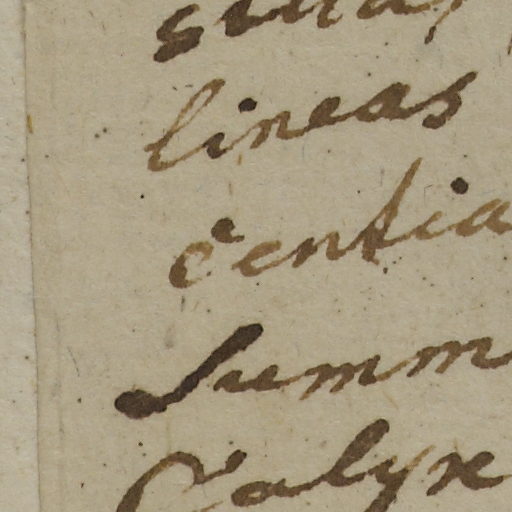 lineas
centia
Summ
Calyx